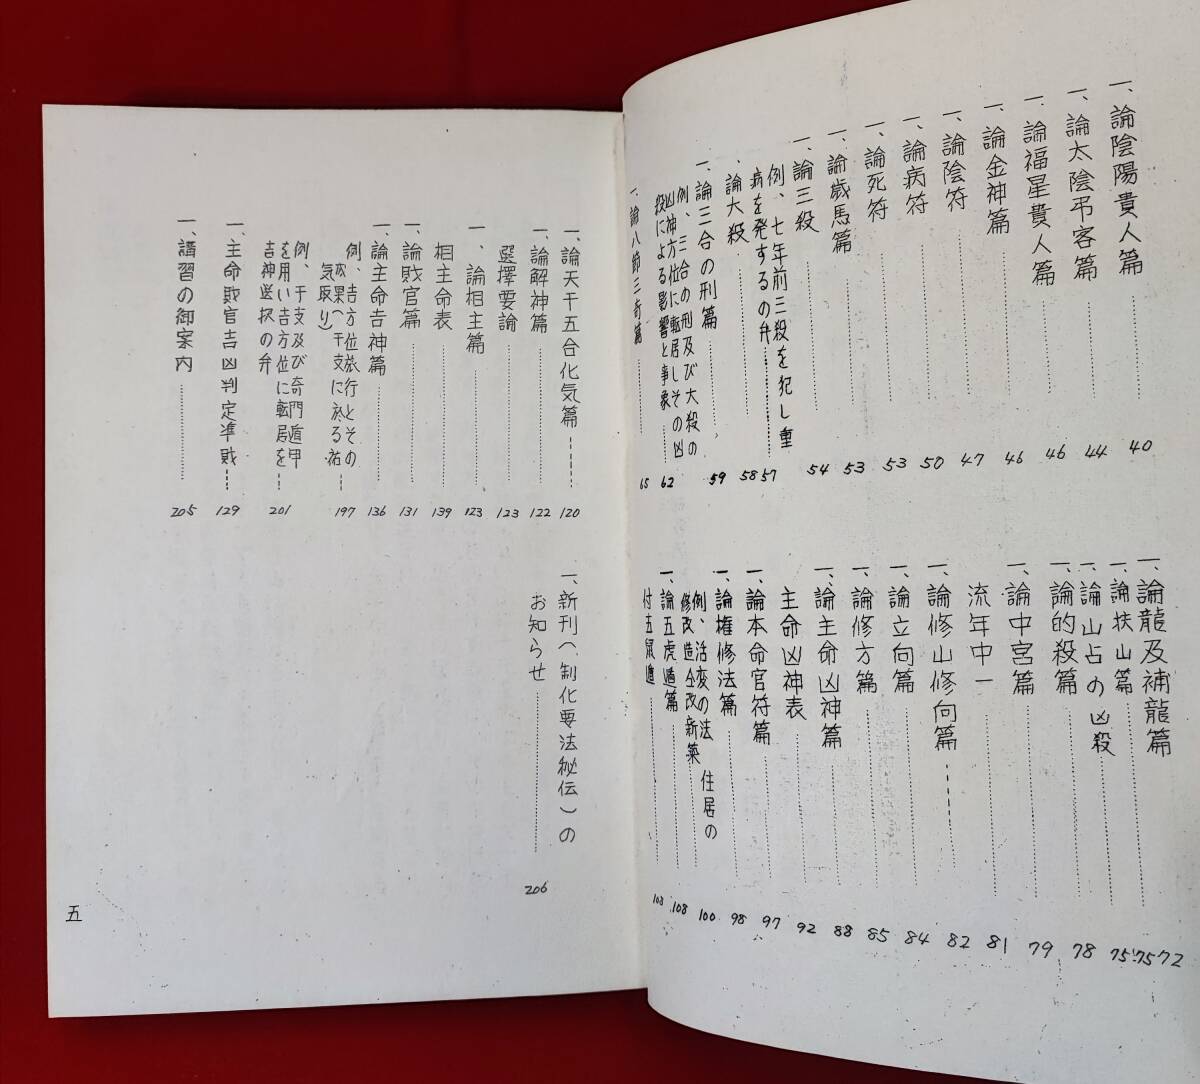 一、論陰陽貴人篇 40
一、論太陰弔客篇 44
一、論福星貴人篇 46
一、論金神篇 46
一、論陰符 47
一、論病符 50
一、論死符 53
一、論歳馬篇 53
一、論三殺 54
例、七年前三殺を犯し重
病を発するの弁 57
、論大殺 58
一、論三合の刑篇 59
例、三合の刑及び大殺の
凶神方位に転居しその凶
殺による影響と事象 62
一、論八節三奇篇 65
一、論龍及補龍篇 72
一、論扶山篇 75
一、論山占の凶殺 75
一、論的殺篇 78
一、論中宮篇 79
流年中一 81
一、論修山修向篇 82
一、論立向篇 84
一、論修方篇 85
一、論主命凶神篇 88
主命凶神表 92
一、論本命官符篇 97
一、論権修法篇 98
例、活変の法 住居の
修改造全改新築 100
一、論五虎遁篇 108
付五鼠遁 108
一、論天干五合化気篇 120
一、論解神篇 122
選擇要論 123
一、論相主篇 123
相主命表 139
一、論貶官篇 131
一、論主命吉神篇 136
例、吉方位旅行とその
効果(干支に於る祐
気取り) 197
例、干支及び奇門遁甲
を用い吉方位に転居を
吉神選択の弁 201
一、主命貶官吉凶判定準敗 129
一、講習の御案内 205
一、新刊へ、制化要法秘伝)の
お知らせ 206
五